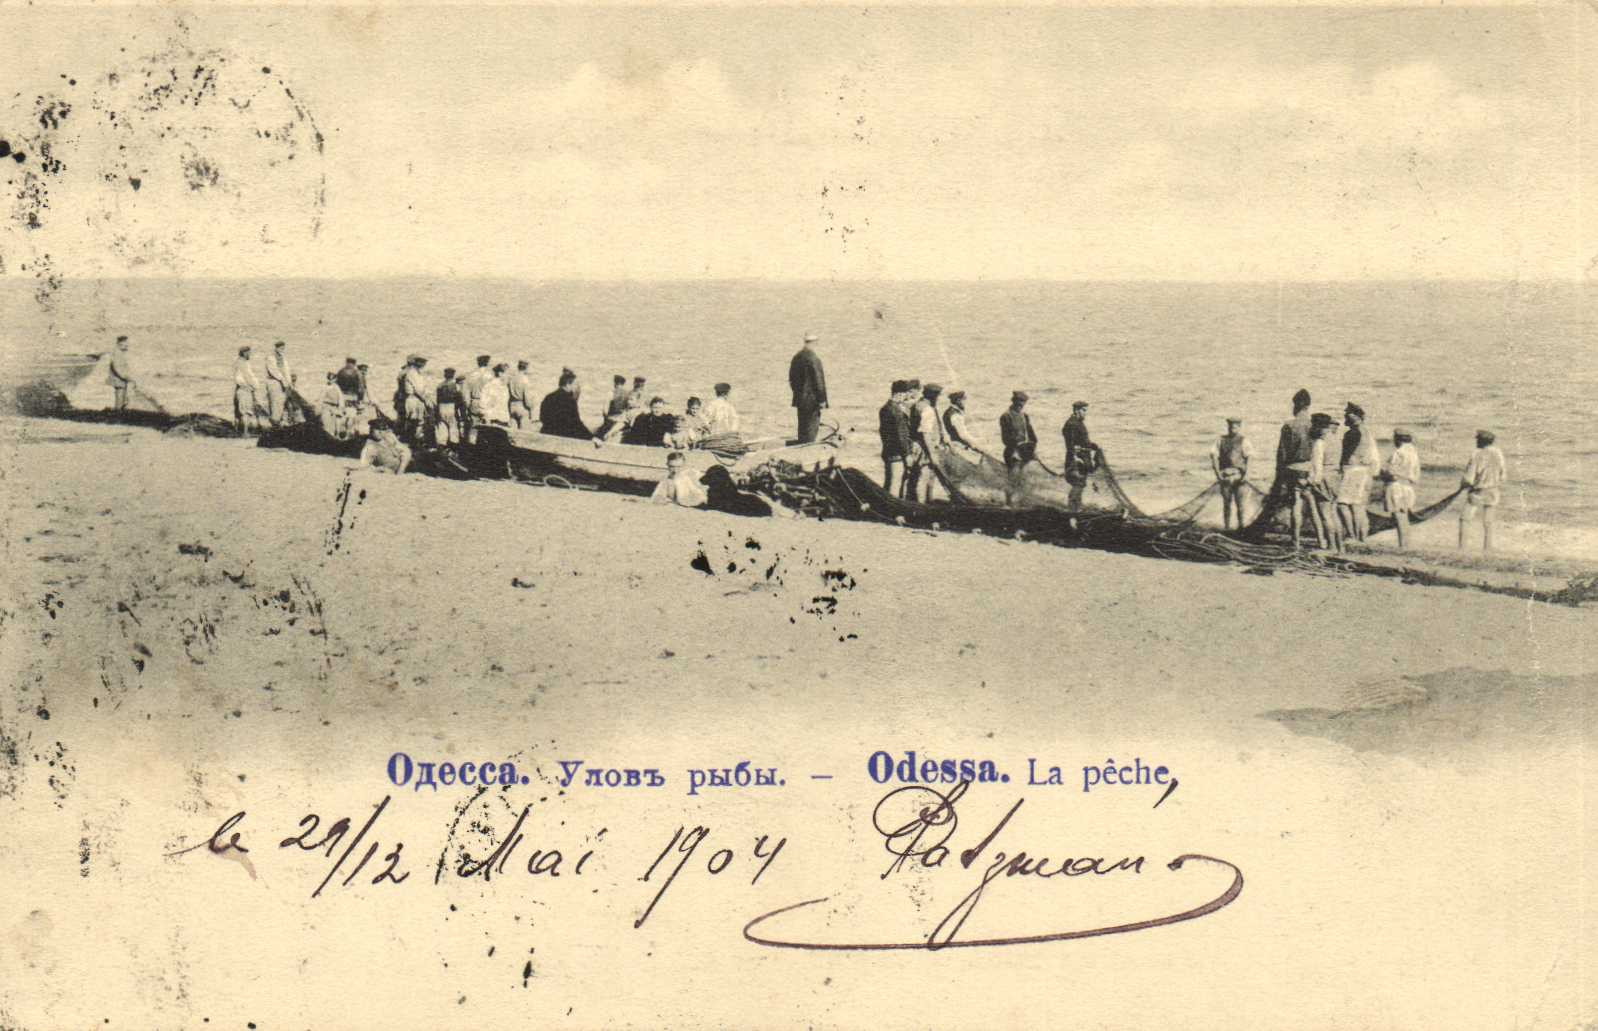 Одесса. Уловъ рыбы. – Odessa. La pêche,
le 29/12 Mai 1904